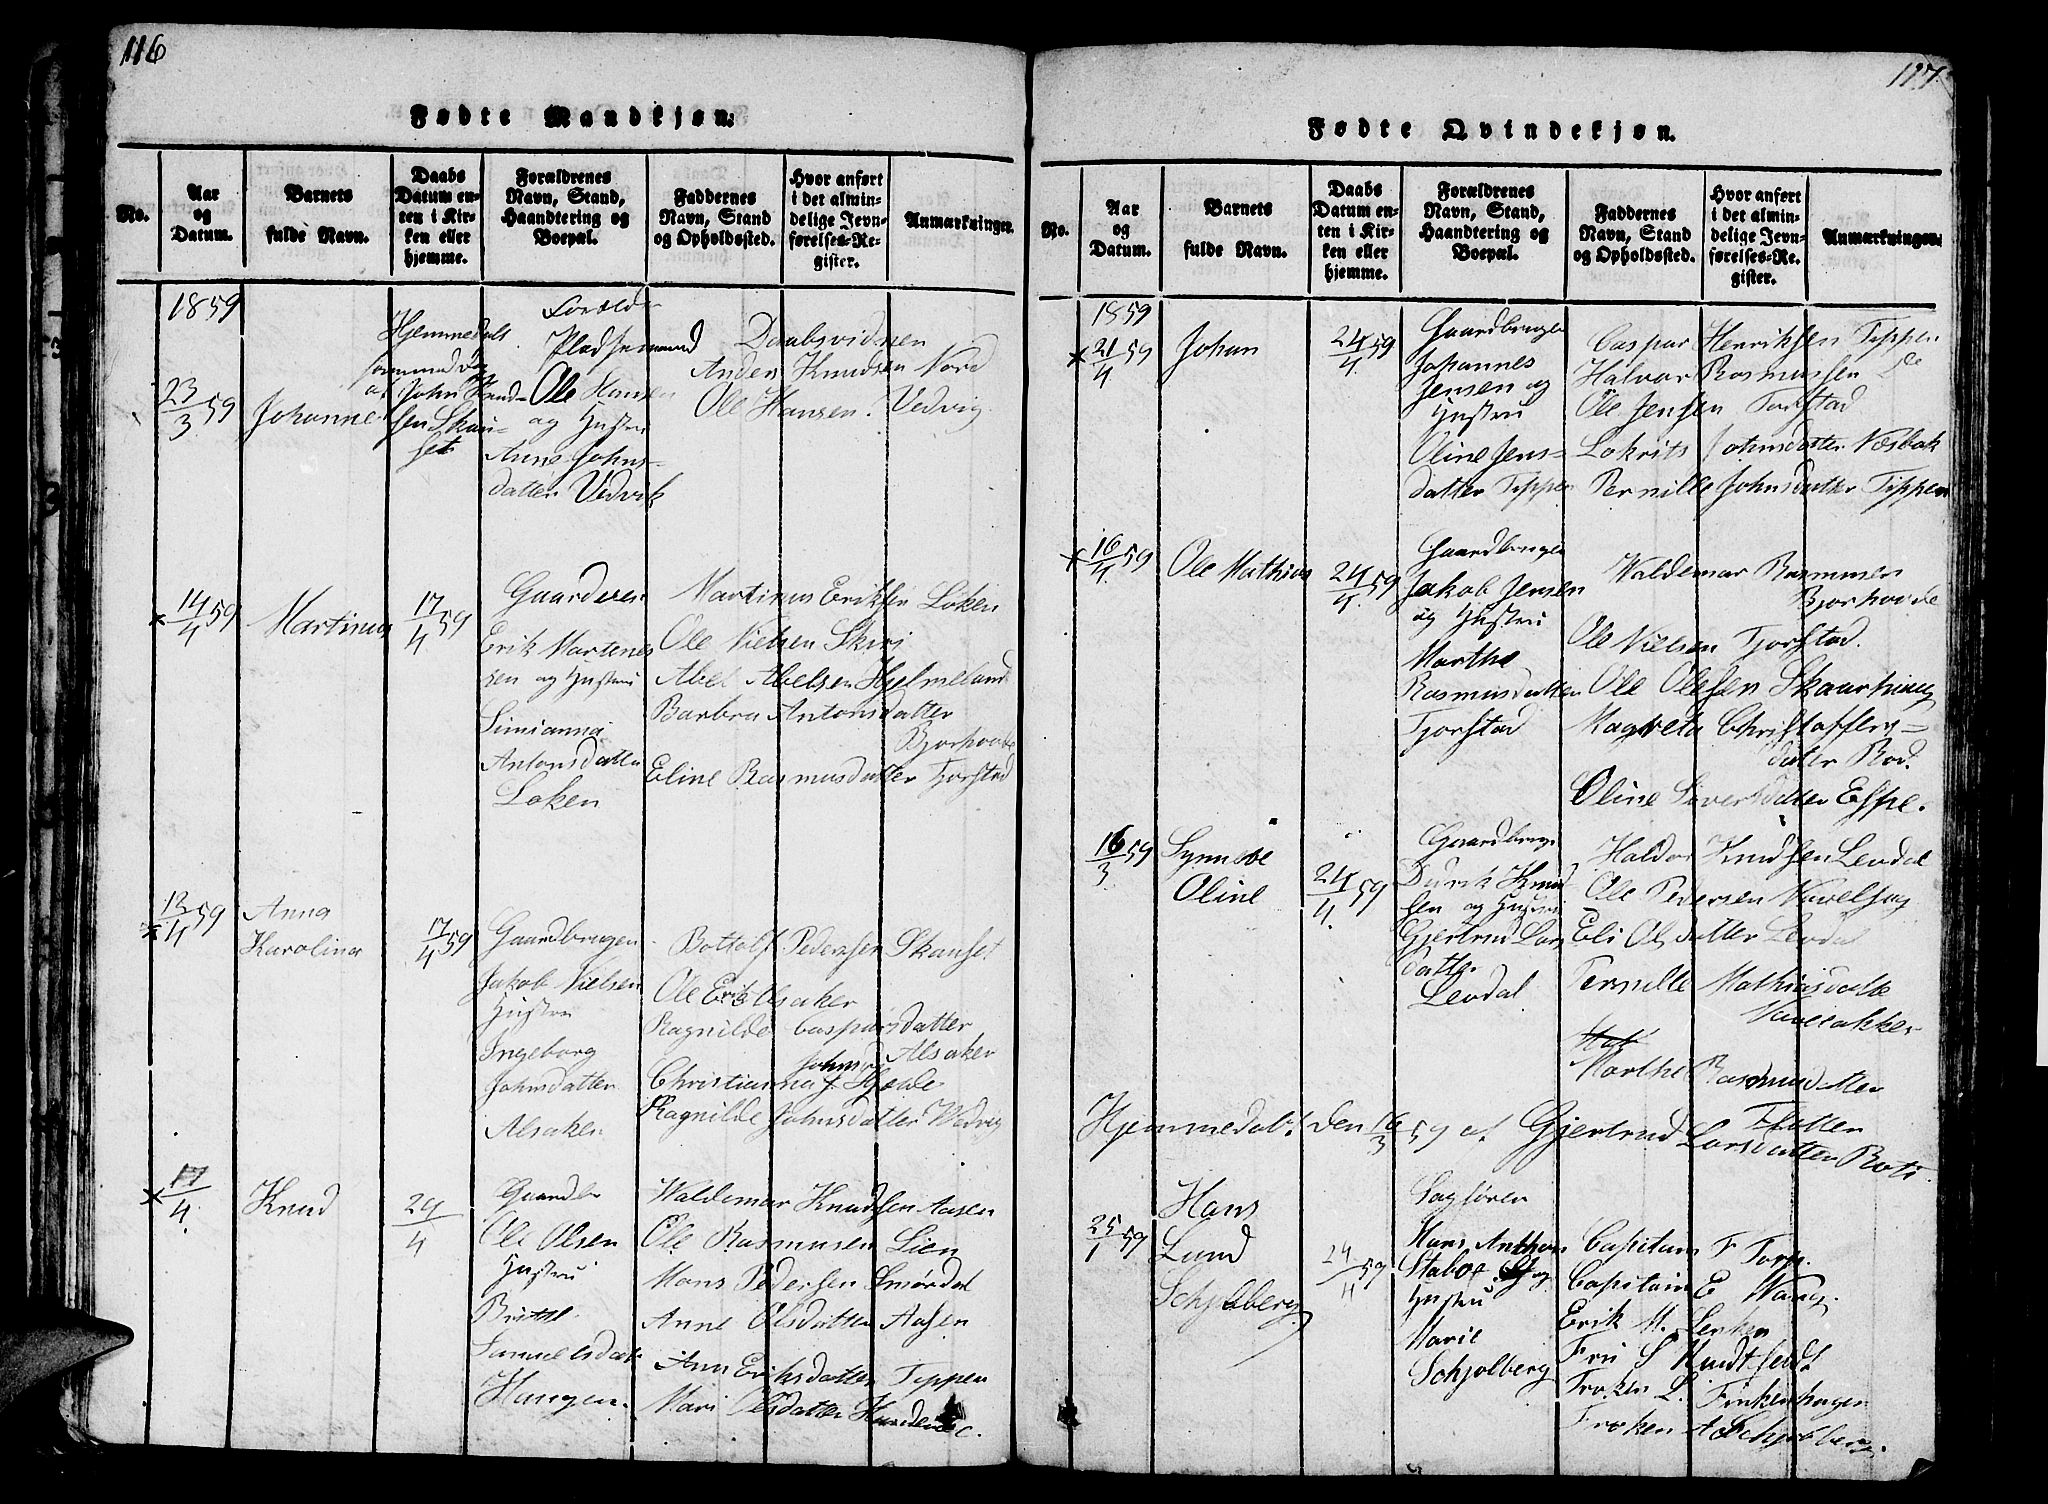 116
Fødte Mandkjøn.
No.
Aar
og
Datum.
Barnets
fulde Navn.
Daabs
Datum en-
ten i Kir-
ken eller
hjemme.
Forældrenes
Navn, Stand,
Haandtering og
Boepæl.
Faddernes
Navn, Stand
og Opholdssted.
Hvor anført
i det almin-
delige Jevn-
førelses-Re-
gister.
Anmærkninger.
1859
23/3 59
Johanne
Hjemmedøbs
samme Dag
af John Knud-
sen Skan-
set
Pladsemand
Ole Hansen
og Hustru
Anne Johns-
datter Vedvik
Daabsvidnen
Anders Knudsen Nord
Ole Hansen. Vedvig
14/4 59
Martinus
17/4 59
Erik Martenes
sen og Hustru
Simianna
Antonsdatter
Loken
Martinus Eriksen Løken
Ole Nielsen Skiri
Abel Abelsen Hjelmeland
Barbra Antonsdatter
Bjorhovde
Eline Rasmusdatter Tjorstad
12/4 59
Anna
Karolina
17/4 59
Gaardbrugen
Jakob Nielsen
Hustru
Ingeborg
Johnsdatter
Alsaker
Bottolf Pedersen Skanset
Ole Erik Alsaker
Ragnilde Caspersdatter
Alsaker
Christianna Johnsd. Hjelde
Ragnilde Johnsdatter Vedvig
17/4
Knud
29/4
Gaardbr
Ole Olsen
Hustru
Samuelsdat
Haugen.
Waldemar Knudsen Aasen
Ole Rasmusen Lien
Mons Pedersen Smørdal
Anne Olsdatter Aasen
Ann Eriksdatter Tippen
Mari Olsdatter
117.
Fødte Qvindekjøn.
No.
Aar
og
Datum.
Barnets
fulde Navn.
Daabs
Datum en-
ten i Kir-
ken eller
hjemme.
Forældrenes
Navn, Stand,
Haandtering og
Boepæl.
Faddernes
Navn, Stand
og Opholdssted.
Hvor anført
i det almin-
delige Jevn-
førelses-Re-
gister.
Anmærkninger.
1859
21/4 59
Johan
24/4 59
Gaardbruger
Johannes
Jensen og
Hustru
Oline Jens-
datter Tippen
Caspar Henriksen Tippen
Halvar Rasmussen do
Ole Jensen Torstad
Lokrits Johnsdatter Næsbak
Pernille Johnsdatter Tippen
16/4 59
Ole Mathias
24/4 59
Gaardbruger
Jakob Jensen
og Hustru
Marthe
Rasmusdatter
Tjorstad
Waldemar Rasmusen
Bjorhovde
Ole Nielsen Tjorstad.
Ole Olesen Skaarhiug
Magreta Christoffers-
datter Rod.
Oline Siversdatter Espe.
16/3 59
Synneve
Oline
24/4 59
Gaardbrug
Knud
sen og Hustru
Gjertrud Lars
datter
Levdal
Haldor Knudsen Levdal
Ole Pedersen
Eli Olsdatter Levdal
Pernille Mathiasdatte
Marthe Rasmusdatter
Hjemmedøbt den 16/3 59 af Gjertrud Larsdatter
25/1 59
Hans
Lund
Schjolberg
24/4 59
Sagforen
Hans Anthon
og
Hustru
Marie
Schjolberg
Capitain F Torp.
Capitain E Wang.
Erik M. Lenken
Fru S Hundtfeldt
Froken L. Finkenhagen
Froken A Schjolberg.